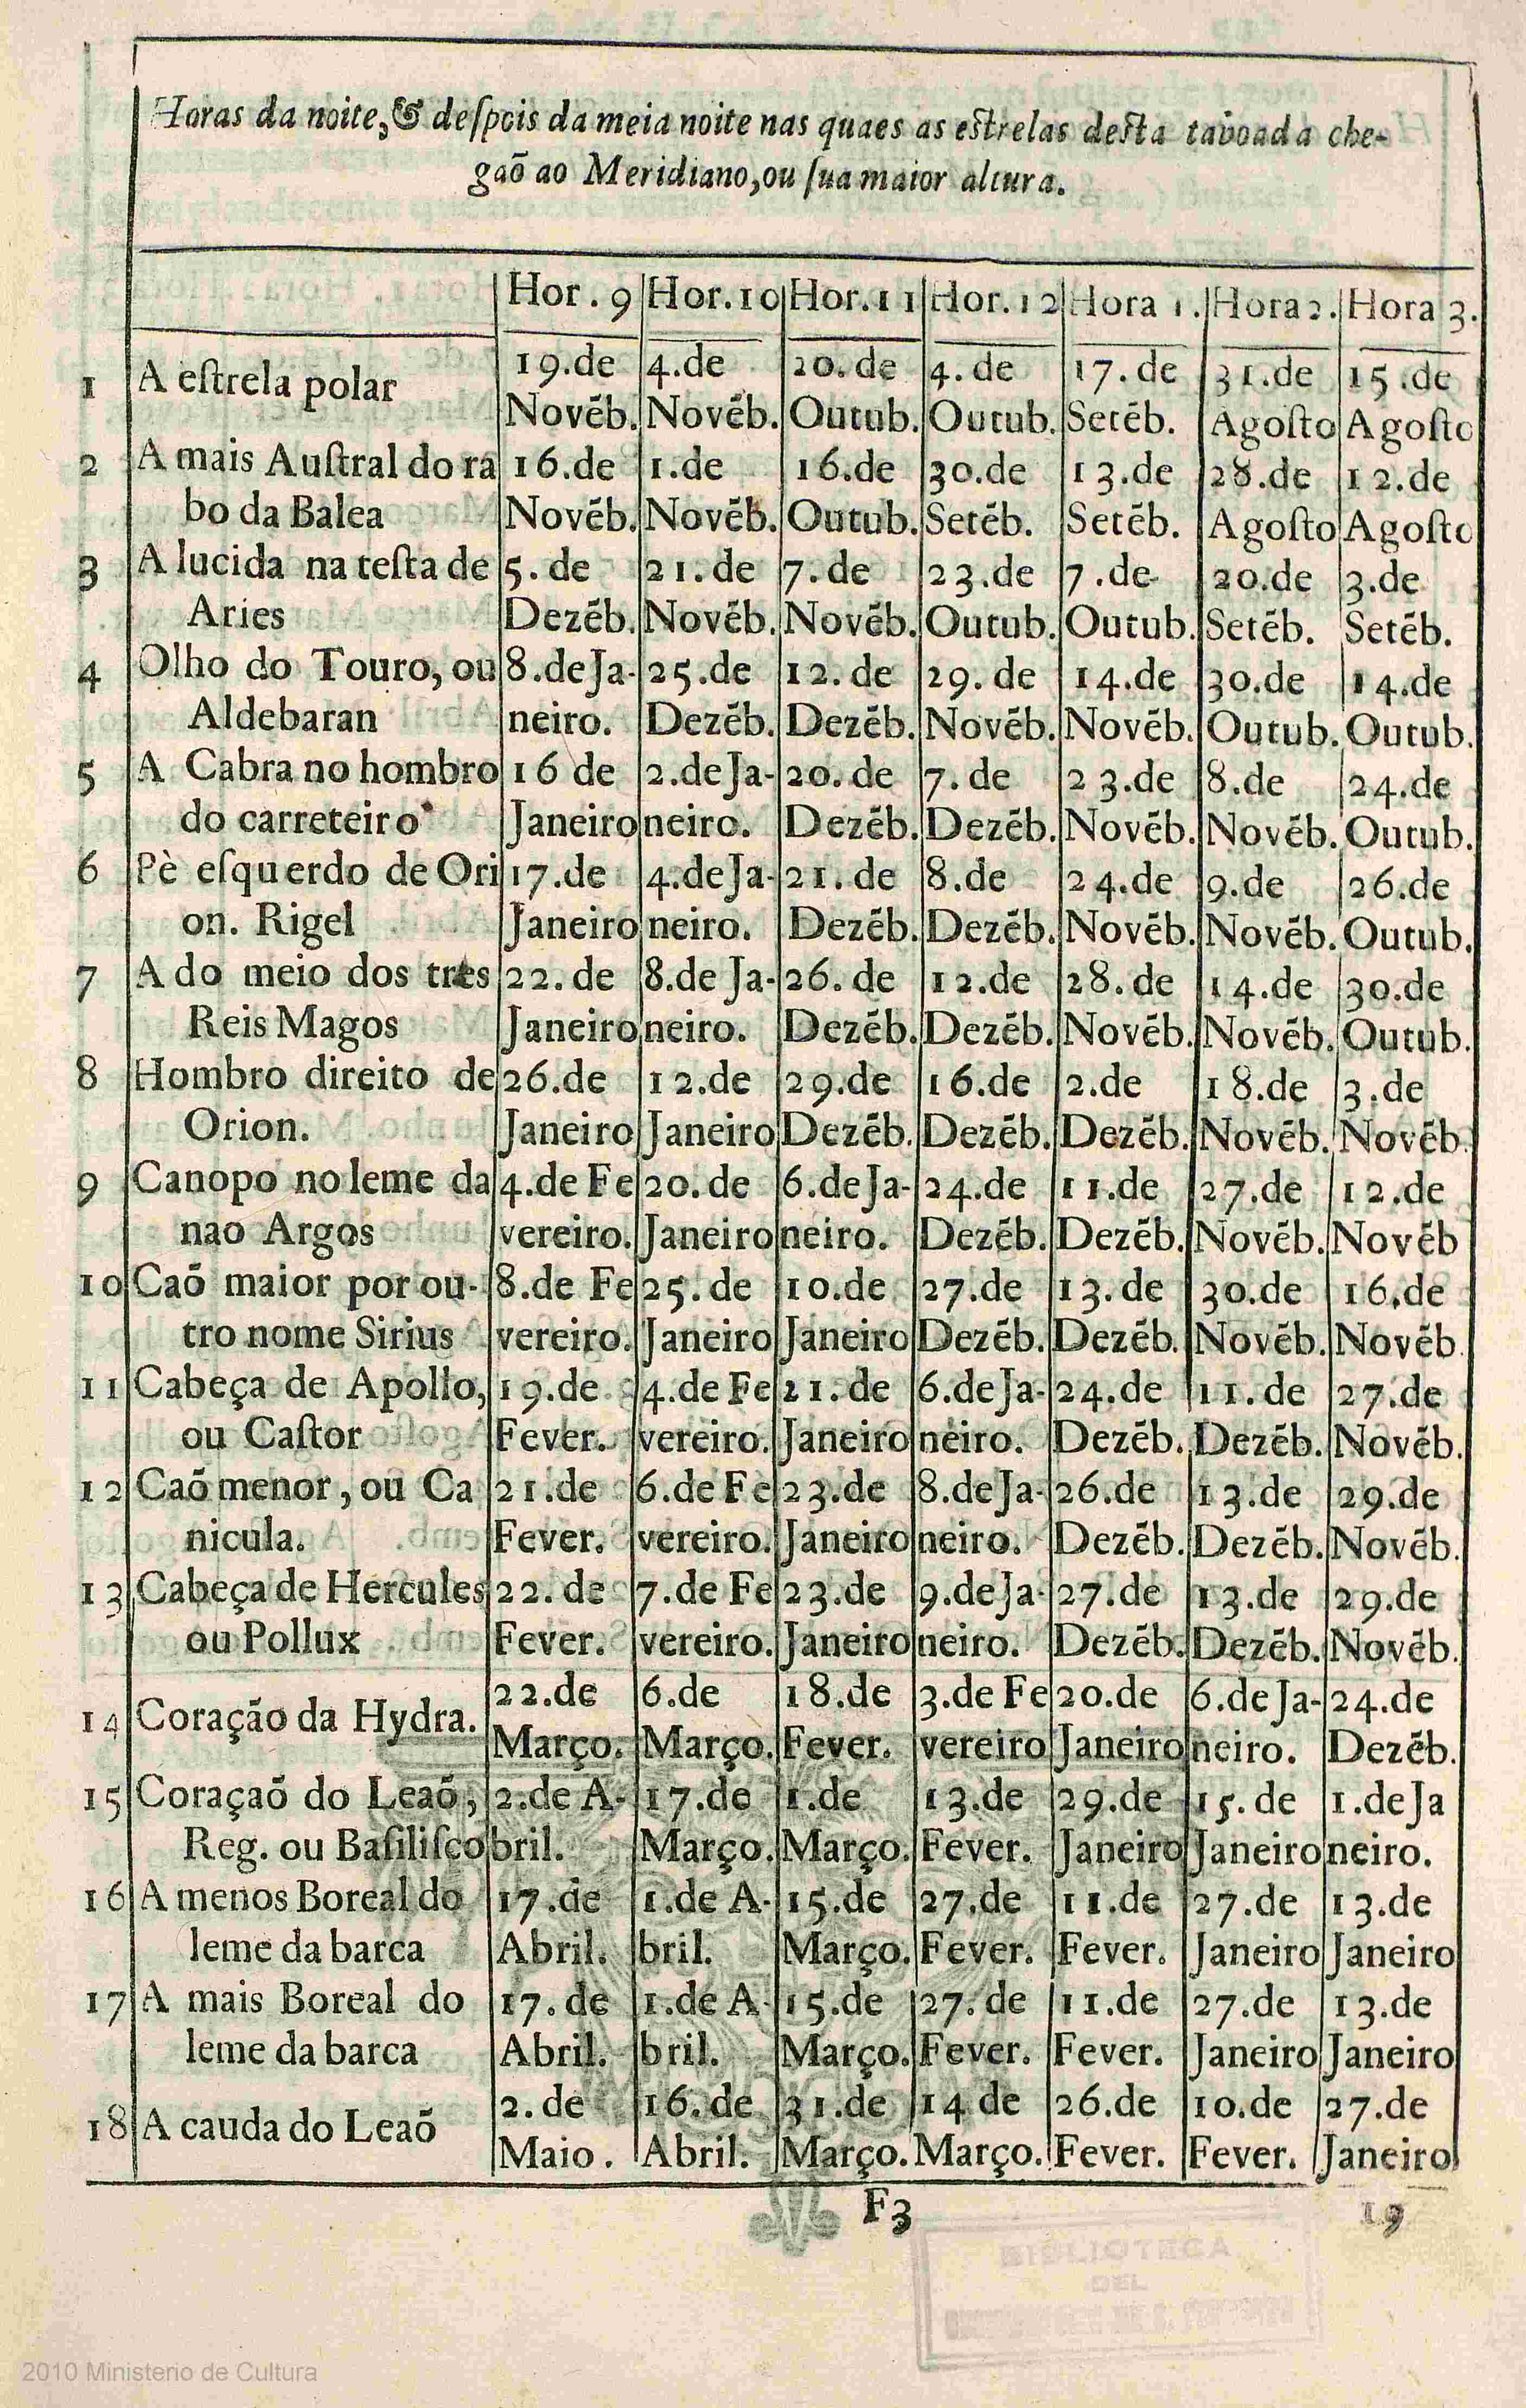 Horas da noite, & deſpois da meia noite nas quaes as eſtrelas deſta taboada che-
gaõ ao Meridiano, ou ſua maior altura.
Hor. 9 Hor. 10 Hor. 11 Hor. 12 Hora 1. Hora 2. Hora 3.
1 A eſtrela polar 19. de 4. de 20. de 4. de 17. de 31. de 15. de
Novẽb. Novẽb. Outub. Outub. Setẽb. Agoſto Agoſto
2 A mais Auſtral do ra 16. de 1. de 16. de 30. de 13. de 28. de 12. de
bo da Balea Novẽb. Novẽb. Outub. Setẽb. Setẽb. Agoſto Agoſto
3 A lucida na teſta de 5. de 21. de 7. de 23. de 7. de 20. de 3. de
Aries Dezẽb. Novẽb. Novẽb. Outub. Outub. Setẽb. Setẽb.
4 Olho do Touro, ou 8. de Ja- 25. de 12. de 29. de 14. de 30. de 14. de
Aldebaran neiro. Dezẽb. Dezẽb. Novẽb. Novẽb. Outub. Outub.
5 A Cabra no hombro 16 de 2. de Ja- 20. de 7. de 23. de 8. de 24. de
do carreteiro Janeiro neiro. Dezẽb. Dezẽb. Novẽb. Novẽb. Outub.
6 Pè eſquerdo de Ori 17. de 4. de Ja- 21. de 8. de 24. de 9. de 26. de
on. Rigel Janeiro neiro. Dezẽb. Dezẽb. Novẽb. Novẽb. Outub.
7 A do meio dos tres 22. de 8. de Ja- 26. de 12. de 28. de 14. de 30. de
Reis Magos Janeiro neiro. Dezẽb. Dezẽb. Novẽb. Novẽb. Outub.
8 Hombro direito de 26. de 12. de 29. de 16. de 2. de 18. de 3. de
Orion. Janeiro Janeiro Dezẽb. Dezẽb. Dezẽb. Novẽb. Novẽb.
9 Canopo no leme da 4. de Fe 20. de 6. de Ja- 24. de 11. de 27. de 12. de
nao Argos vereiro. Janeiro neiro. Dezẽb. Dezẽb. Novẽb. Novẽb
10 Caõ maior por ou- 8. de Fe 25. de 10. de 27. de 13. de 30. de 16. de
tro nome Sirius vereiro. Janeiro Janeiro Dezẽb. Dezẽb. Novẽb. Novẽb.
11 Cabeça de Apollo, 19. de 4. de Fe 21. de 6. de Ja- 24. de 11. de 27. de
ou Caſtor Fever. vereiro. Janeiro neiro. Dezẽb. Dezẽb. Novẽb.
12 Caõ menor, ou Ca 21. de 6. de Fe 23. de 8. de Ja- 26. de 13. de 29. de
nicula. Fever. vereiro. Janeiro neiro. Dezẽb. Dezẽb. Novẽb.
13 Cabeça de Hercules 22. de 7. de Fe 23. de 9. de Ja- 27. de 13. de 29. de
ou Pollux Fever. vereiro. Janeiro neiro. Dezẽb. Dezẽb. Novẽb.
14 Coração da Hydra. 22. de 6. de 18. de 3. de Fe 20. de 6. de Ja- 24. de
Março. Março. Fever. vereiro Janeiro neiro. Dezẽb.
15 Coraçaõ do Leaõ, 2. de A- 17. de 1. de 13. de 29. de 15. de 1. de Ja
Reg. ou Baſiliſco bril. Março. Março. Fever. Janeiro Janeiro neiro.
16 A menos Boreal do 17. de 1. de A- 15. de 27. de 11. de 27. de 13. de
leme da barca Abril. bril. Março. Fever. Fever. Janeiro Janeiro
17 A mais Boreal do 17. de 1. de A- 15. de 27. de 11. de 27. de 13. de
leme da barca Abril. bril. Março. Fever. Fever. Janeiro Janeiro
18 A cauda do Leaõ 2. de 16. de 31. de 14 de 26. de 10. de 27. de
Maio. Abril. Março. Março. Fever. Fever. Janeiro
F3 19
BIBLIOTECA
DEL
2010 Ministerio de Cultura